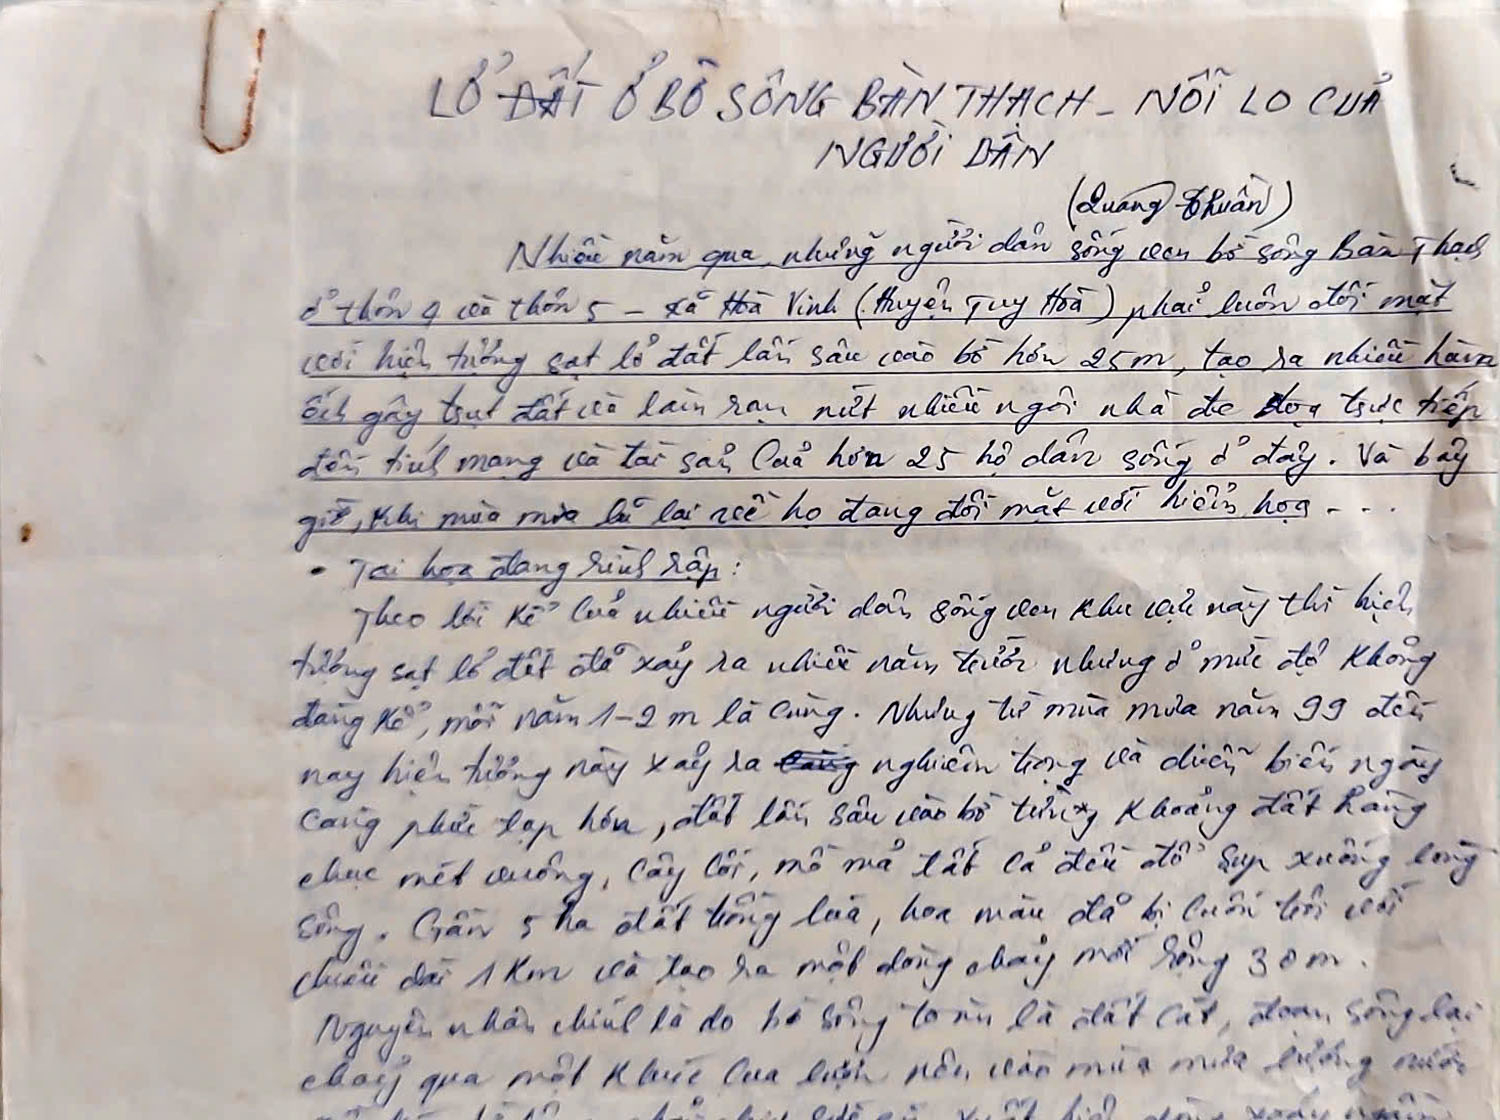 LỞ ĐẤT Ở BỜ SÔNG BÀN THẠCH - NỖI LO CỦA
NGƯỜI DÂN
(Quang Thuần)
Nhiều năm qua, những người dân sống ven bờ sông Bàn Thạch
ở thôn 4 và thôn 5 - xã Hoà Vinh (Huyện Tuy Hoà) phải luôn đối mặt
với hiện tượng sạt lở đất lấn sâu vào bờ hơn 25m, tạo ra nhiều hàm
ếch gây trụt đất và làm rạn nứt nhiều ngôi nhà đe dọa trực tiếp
đến tính mạng và tài sản của hơn 25 hộ dân sống ở đây. Và bây
giờ, khi mùa mưa lũ lại về họ đang đối mặt với hiểm họa - . .
• Tai họa đang rình rập:
Theo lời kể của nhiều người dân sống ven khu vực này thì hiện
tượng sạt lở đất đã xảy ra nhiều năm trước nhưng ở mức độ không
đáng kể, mỗi năm 1-2 m là cùng. Nhưng từ mùa mưa năm 99 đến
nay hiện tượng này xảy ra càng nghiêm trọng và diễn biến ngày
càng phức tạp hơn, đất lấn sâu vào bờ từng khoảng đất hàng
chục mét vuông, cây cối, mồ mả tất cả đều đổ sụp xuống lòng
sông. Gần 5 ha đất trồng lúa, hoa màu đã bị cuốn trôi với
chiều dài 1 Km và tạo ra một dòng chảy mới rộng 30m.
Nguyên nhân chính là do bờ sông toàn là đất cát, đoạn sông lại
chảy qua một khúc cua lượn nên vào mùa mưa lượng nước